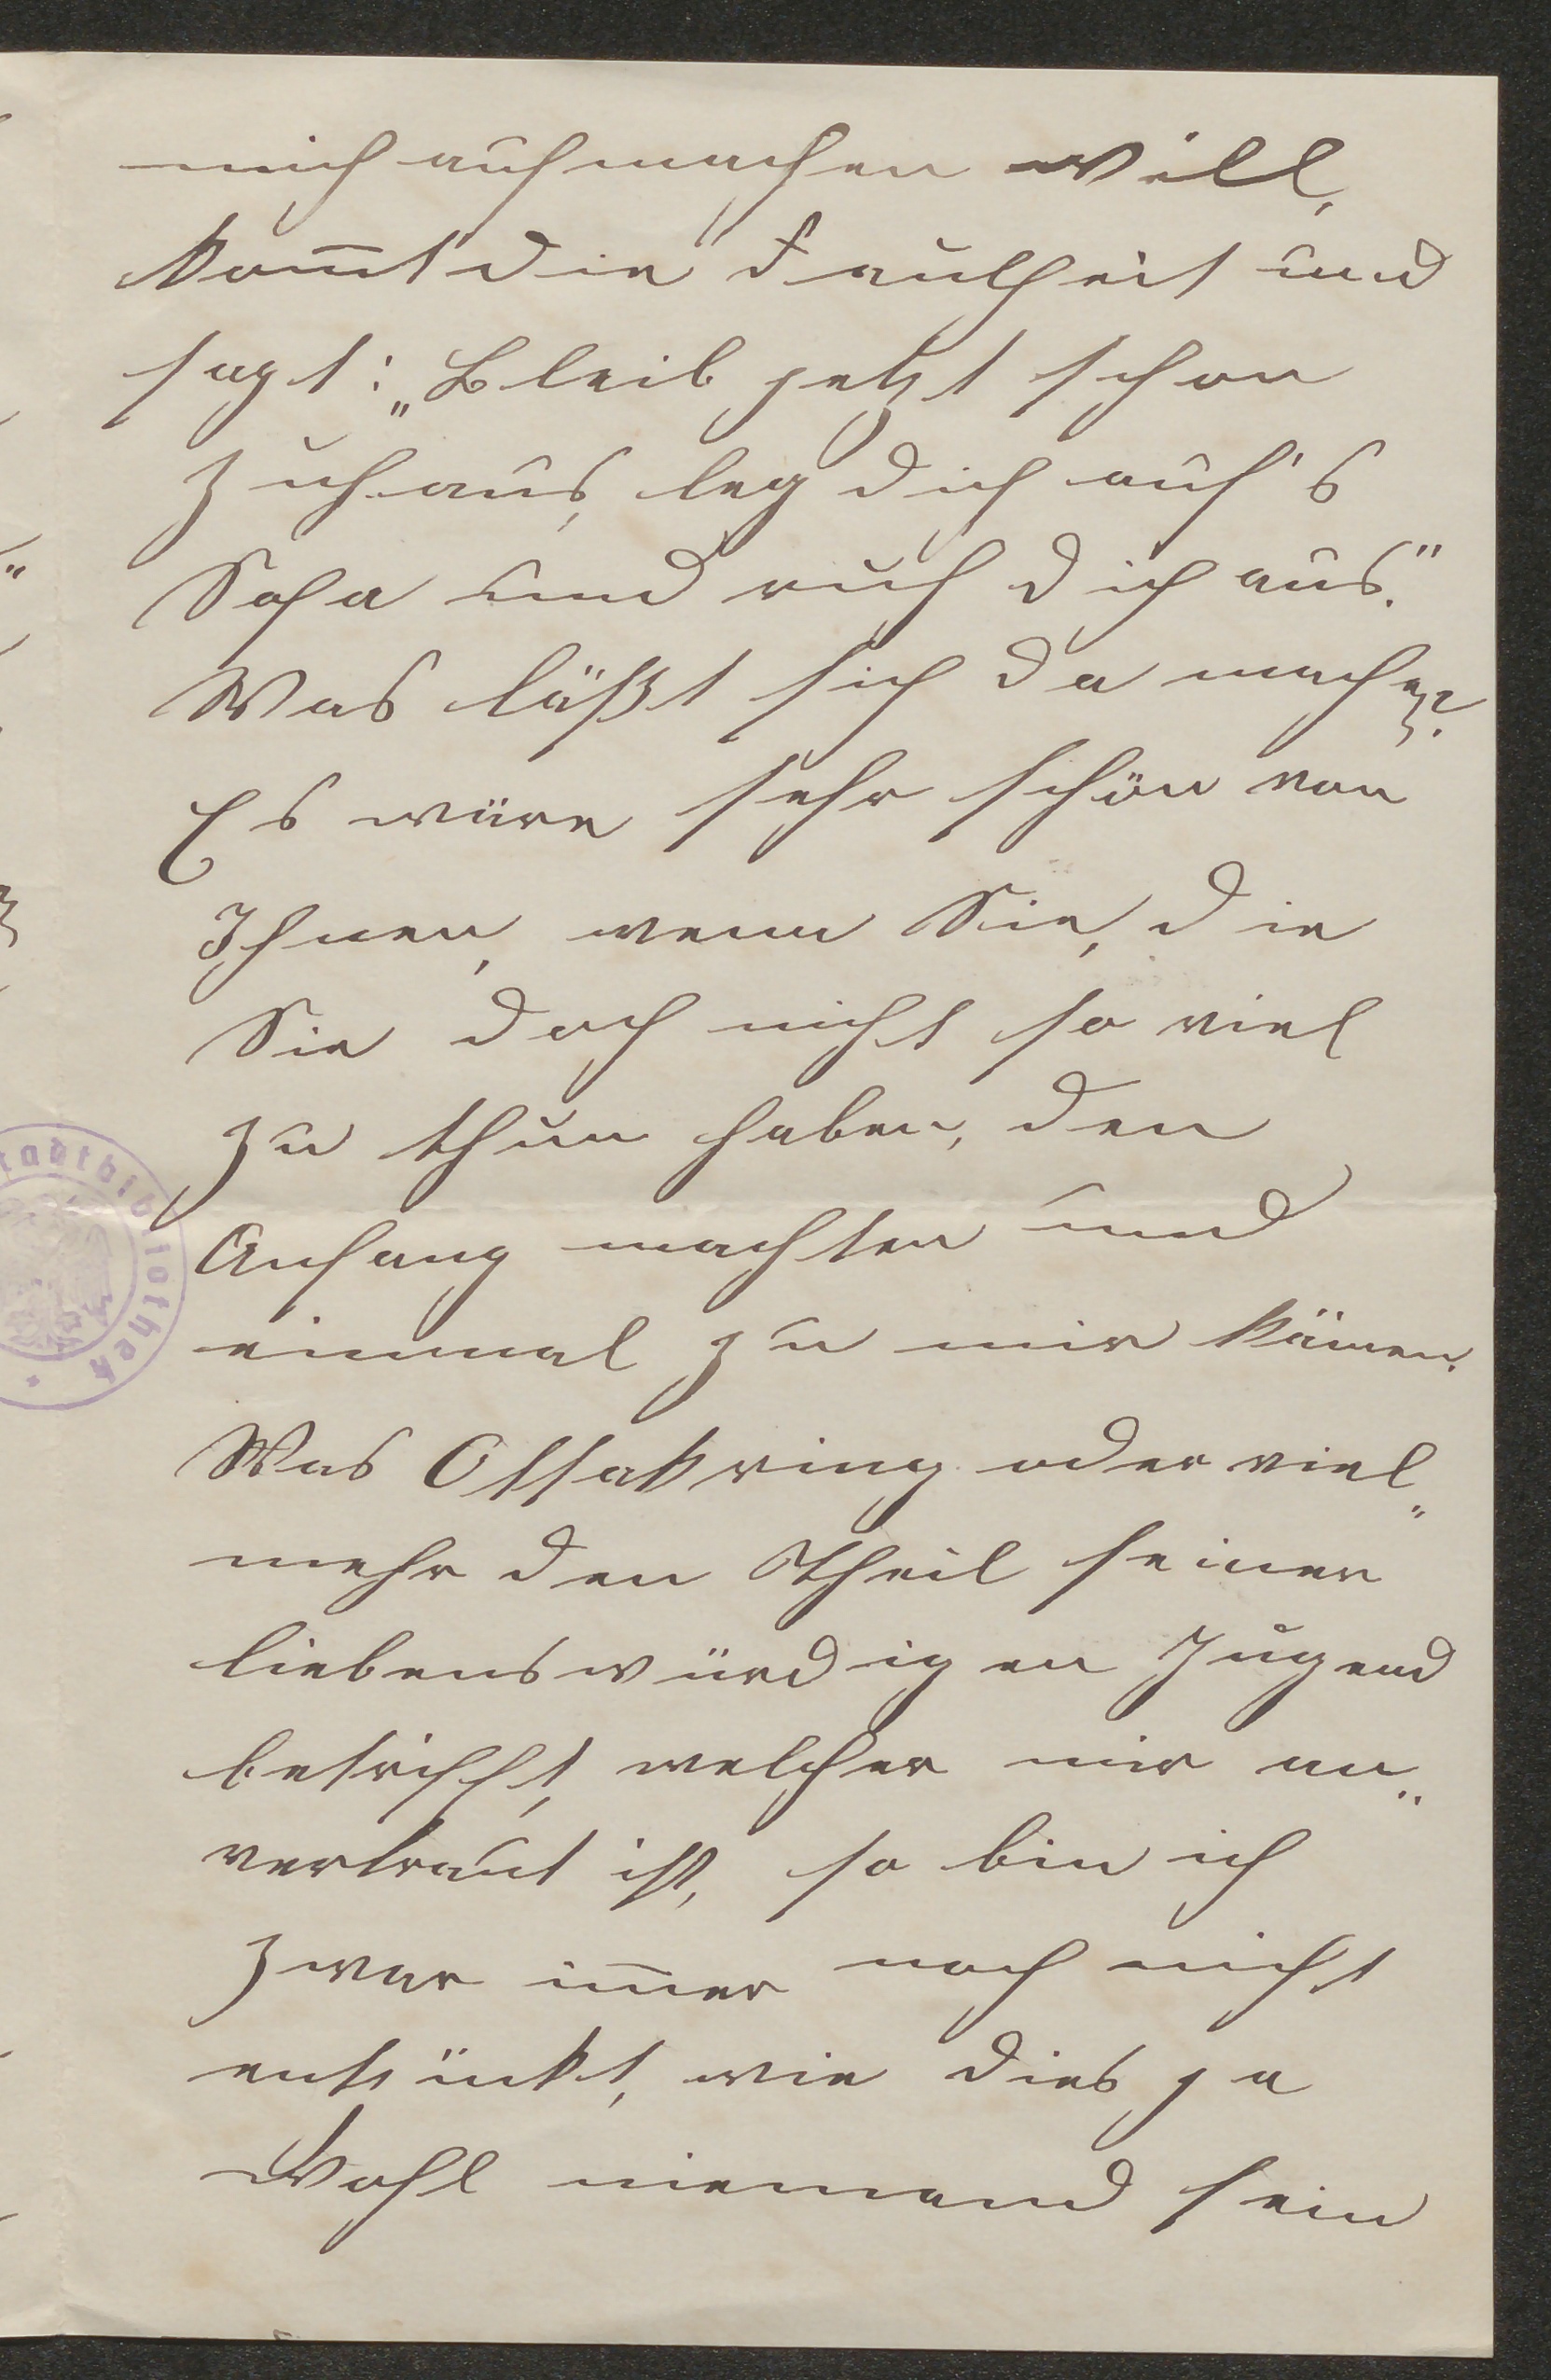 mich aufmachen will,
kom̄t die Faulheit und
sagt: „Bleib jetzt schon
zuhaus, leg dich auf's
Sofa und ruh dich aus."
Was läßt sich da machen?
Es wäre sehr schön von
Ihnen, wenn Sie, die
Sie doch nicht so viel
zu thun haben, den
Anfang machten und
einmal zu mir kämen.
Was Ottakring oder viel„
mehr den Theil seiner
liebenswürdigen Jugend
betrifft, welcher mir an„
vertraut ist, so bin ich
zwar im̄er noch nicht
entzückt, wie dies ja
wohl niemand sein
tadtbibliothek